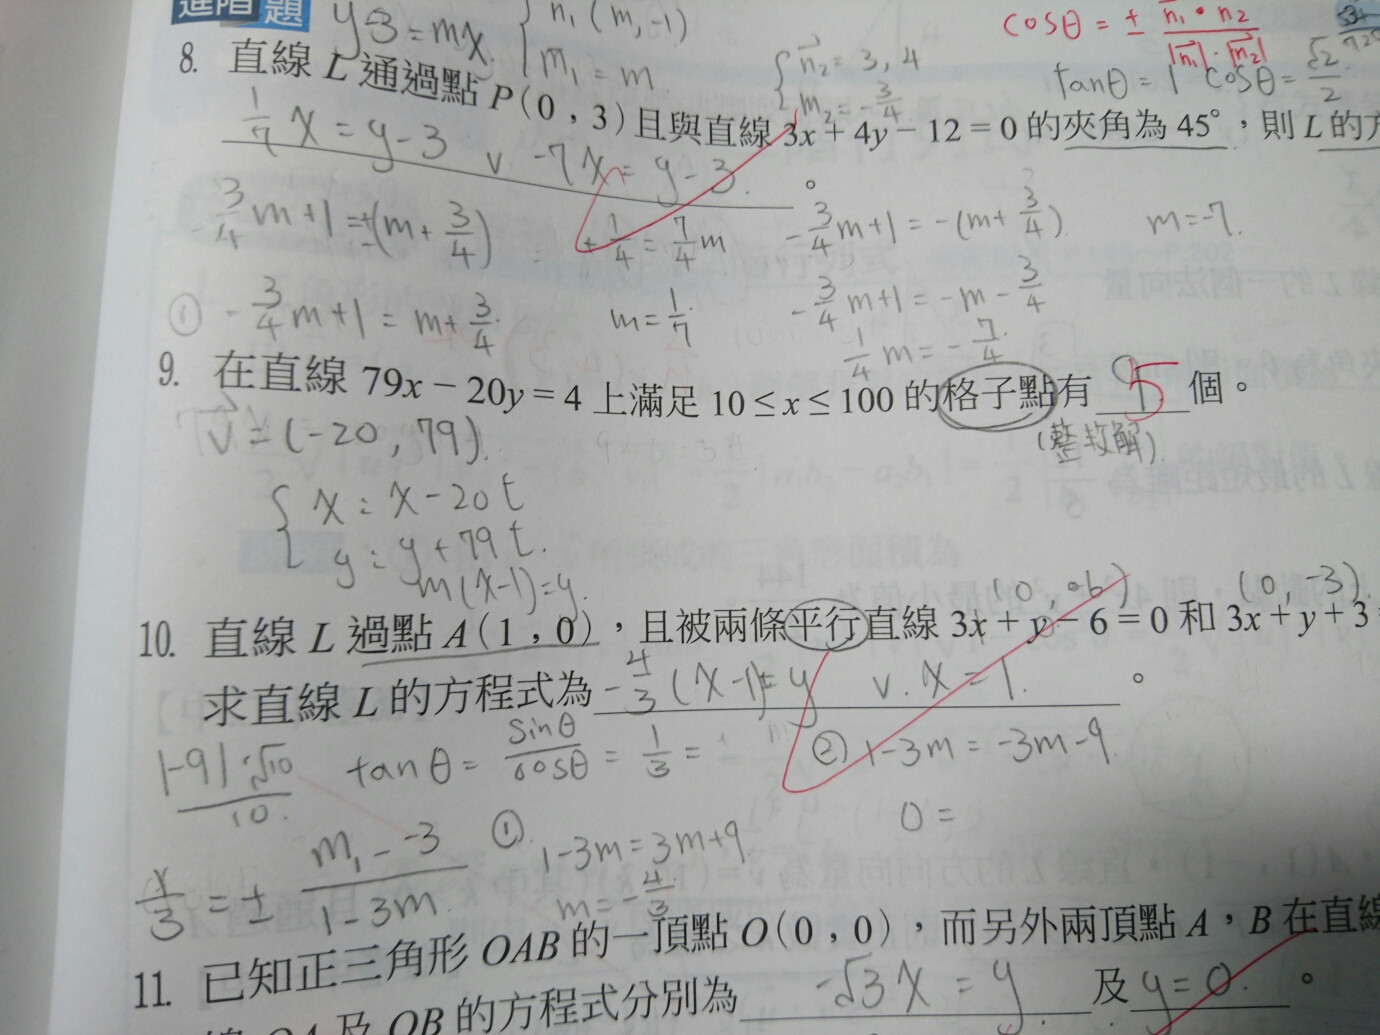 進階題
y-3=mx
n₁(m,-1)
m₁=m
n₂=3,4
m₂=-3/4
cosθ=± n₁·n₂/|n₁|·|n₂|
tanθ=1 cosθ=√2/2
8. 直線 L 通過點 P(0,3)且與直線 3x+4y-12=0 的夾角為 45°,則 L 的方
1/7 x=y-3 v -7x=y-3 。
-3/4m+1=±(m+3/4)
+1/4=7/4m
-3/4m+1=-(m+3/4)
m=-7.
① -3/4m+1=m+3/4
m=1/7
-3/4m+1=-m-3/4
1/4m=-7/4
9. 在直線 79x-20y=4 上滿足 10≤x≤100 的格子點有 5 個。
(整數解)
v=(-20,79)
x=x-20t
y=y+79t.
m(x-1)=y.
(0,-3)
10. 直線 L 過點 A(1,0),且被兩條平行直線 3x+y-6=0 和 3x+y+3
求直線 L 的方程式為 -4/3(x-1)=y v. x=1. 。
|-9|·√10/10
tanθ=sinθ/cosθ=1/3=
② 1-3m=-3m-9.
0=
1/3=± m₁--3/1-3m
① 1-3m=3m+9
m=-4/3
11. 已知正三角形 OAB 的一頂點 O(0,0),而另外兩頂點 A,B 在直線
線 OA 及 OB 的方程式分別為 -√3x=y 及 y=0. 。